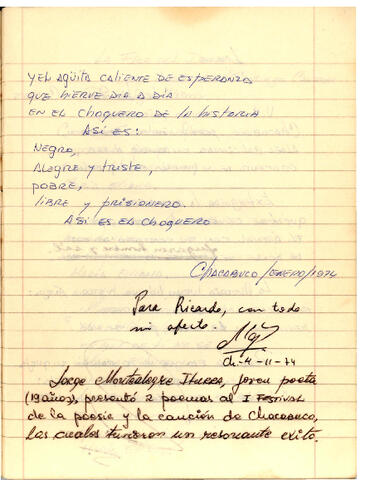 Y EL AGÜITA CALIENTE DE ESPERANZA
QUE HIERVE DIA A DIA
EN EL CHOQUERO DE la historia
ASI ES:
NEGRO,
ALEGRE y TRISTE,
POBRE,
LIBRE y PRISIONERO.
ASI ES EL CHOQUERO
CHACABUCO/ENERO/1974
Para Ricardo, con todo
mi afecto.
Ch-4-11-74
Jorge Montealegre Iturra, joven poeta
(19 años), presentó 2 poemas al I FESTIVAL
de la poesía y la canción de Chacabuco,
los cuales tuvieron un resonante exito.